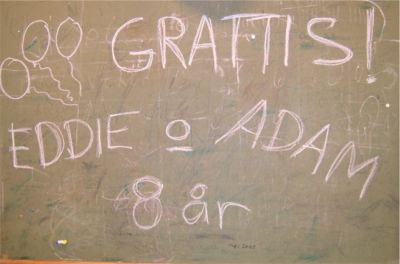 GRATTIS!
EDDIE o ADAM
8 år